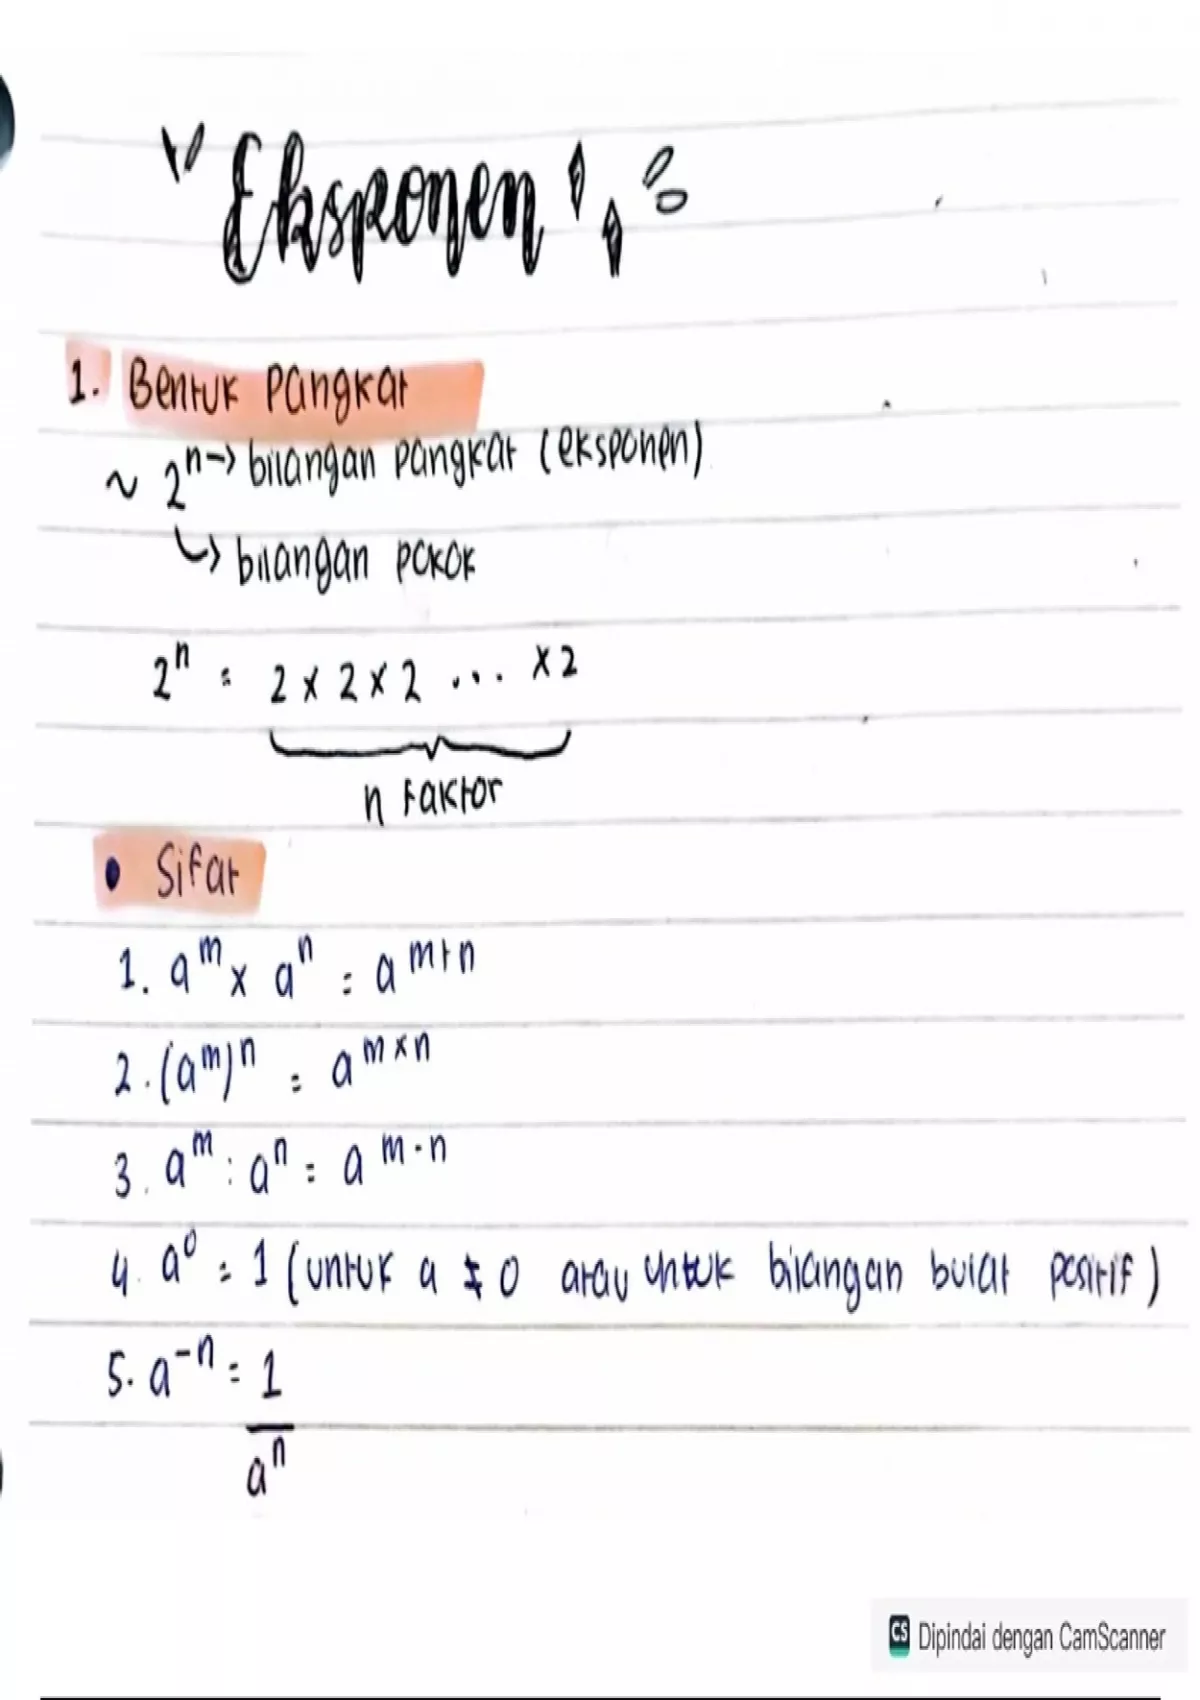 Eksponen
1. Bentuk Pangkat
~ 2ⁿ → bilangan pangkat (eksponen)
↳ bilangan pokok
2ⁿ = 2 x 2 x 2 ... x 2
n faktor
• Sifat
1. aᵐ x aⁿ = aᵐ⁺ⁿ
2. (aᵐ)ⁿ = aᵐˣⁿ
3. aᵐ : aⁿ = aᵐ⁻ⁿ
4. a⁰ = 1 (untuk a ≠ 0 atau untuk bilangan bulat positif)
5. a⁻ⁿ = 1
aⁿ
CS Dipindai dengan CamScanner